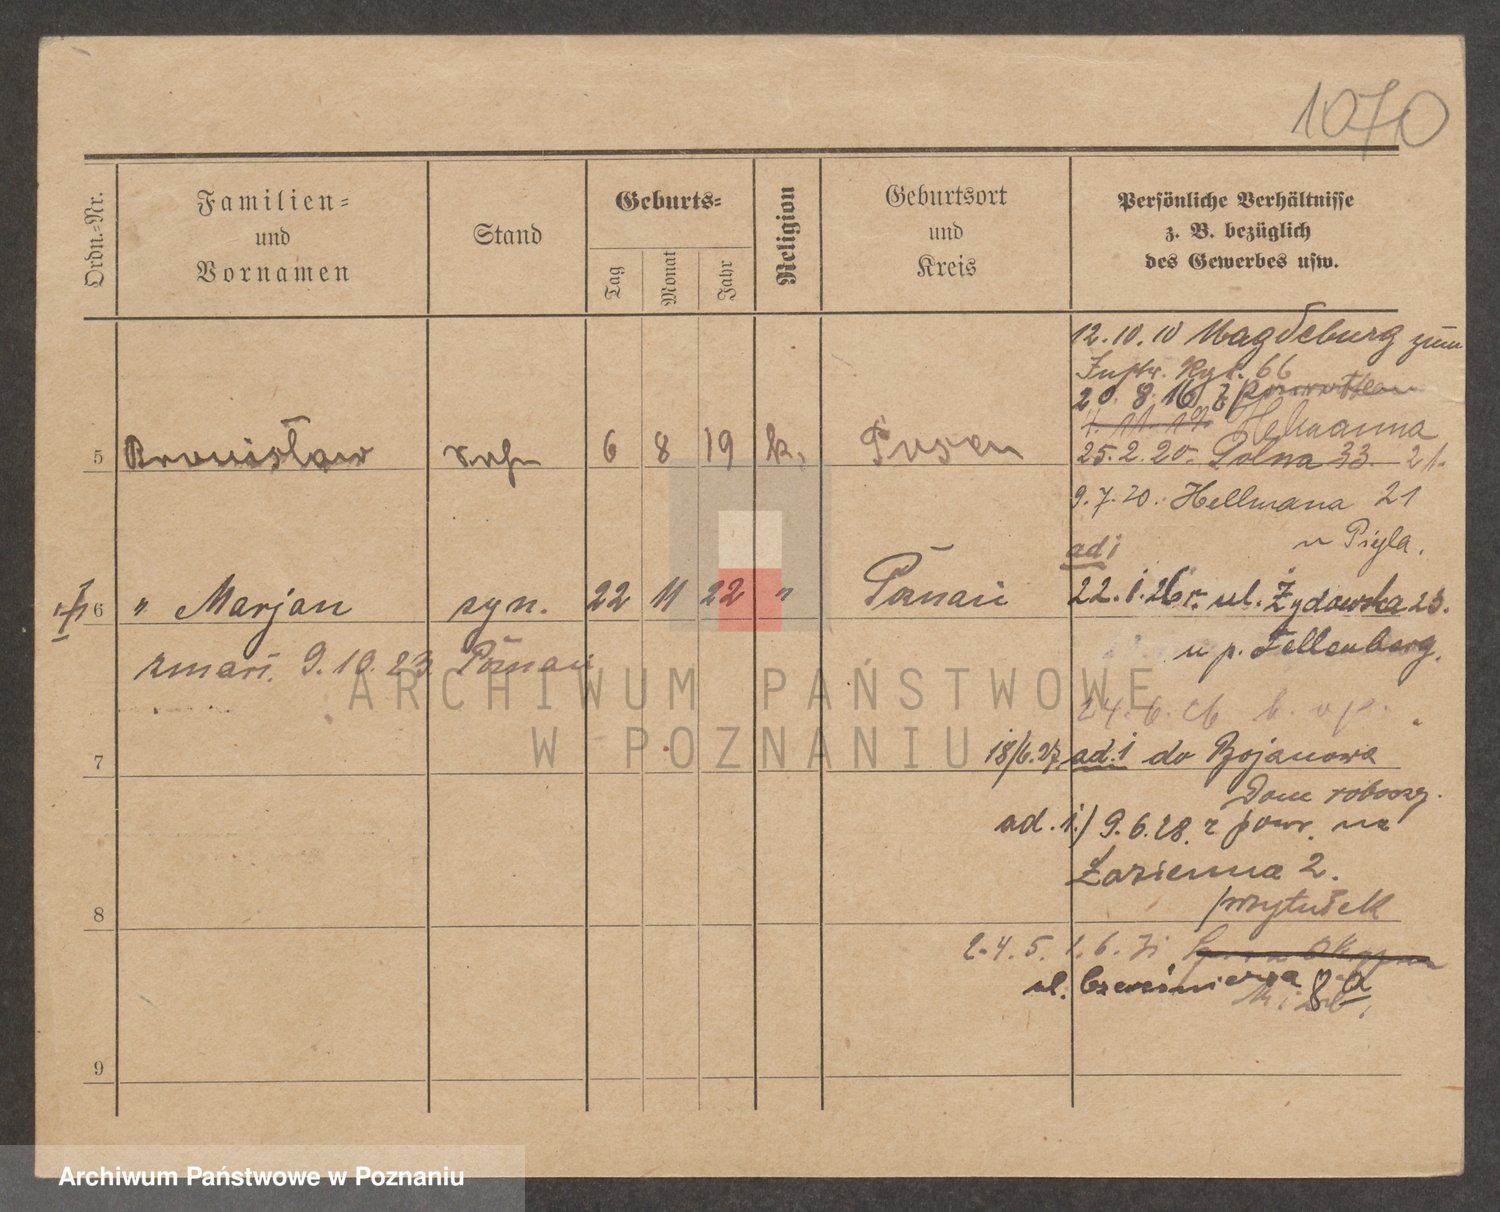 1070
Ordn.-Nr.
Familien-
und
Vornamen
Stand
Geburts-
Tag
Monat
Jahr
Religion
Geburtsort
und
Kreis
Persönliche Verhältnisse
z. B. bezüglich
des Gewerbes usw.
12.10.10 Magdeburg zum
Inftr. Rgt. 66
20. 8. 16
Helmanna
25.2.20. Polna 33 21.
5 Bronisław Sohn 6 8 19 k. Posen
9.7.20. Hellmana 21
ad i
6 " Marjan syn. 22 11 22 " Poznań
22.1.26 r. ul. Żydowska 23.
u p. Fellenberg.
zmarł. 9.10.23 Poznań
24.6.26
7
18/6.27 ad.1 do Bojanowa
Dom roboczy.
ad. 1.) 9.6.28. z powr. na
Łazienna 2.
8
przytułek
2-4. 5. 1. 6. 31
ul. 8a
9
ARCHIWUM PAŃSTWOWE
W POZNANIU
Archiwum Państwowe w Poznaniu